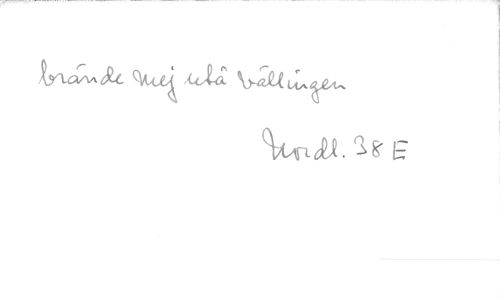 brände mej utå vällingen
Nordl. 38 E